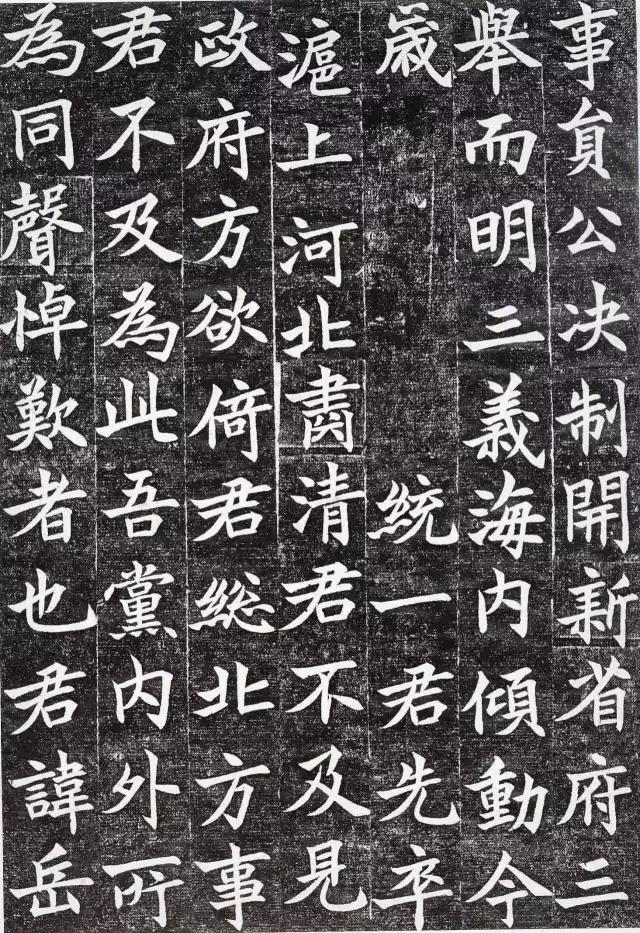 事貟公决制開新省府三
舉而明三義海内傾動今
歲統一君先卒
滬上河北肅清君不及見
政府方欲倚君緫北方事
君不及為此吾黨内外所
為同聲悼歎者也君諱岳